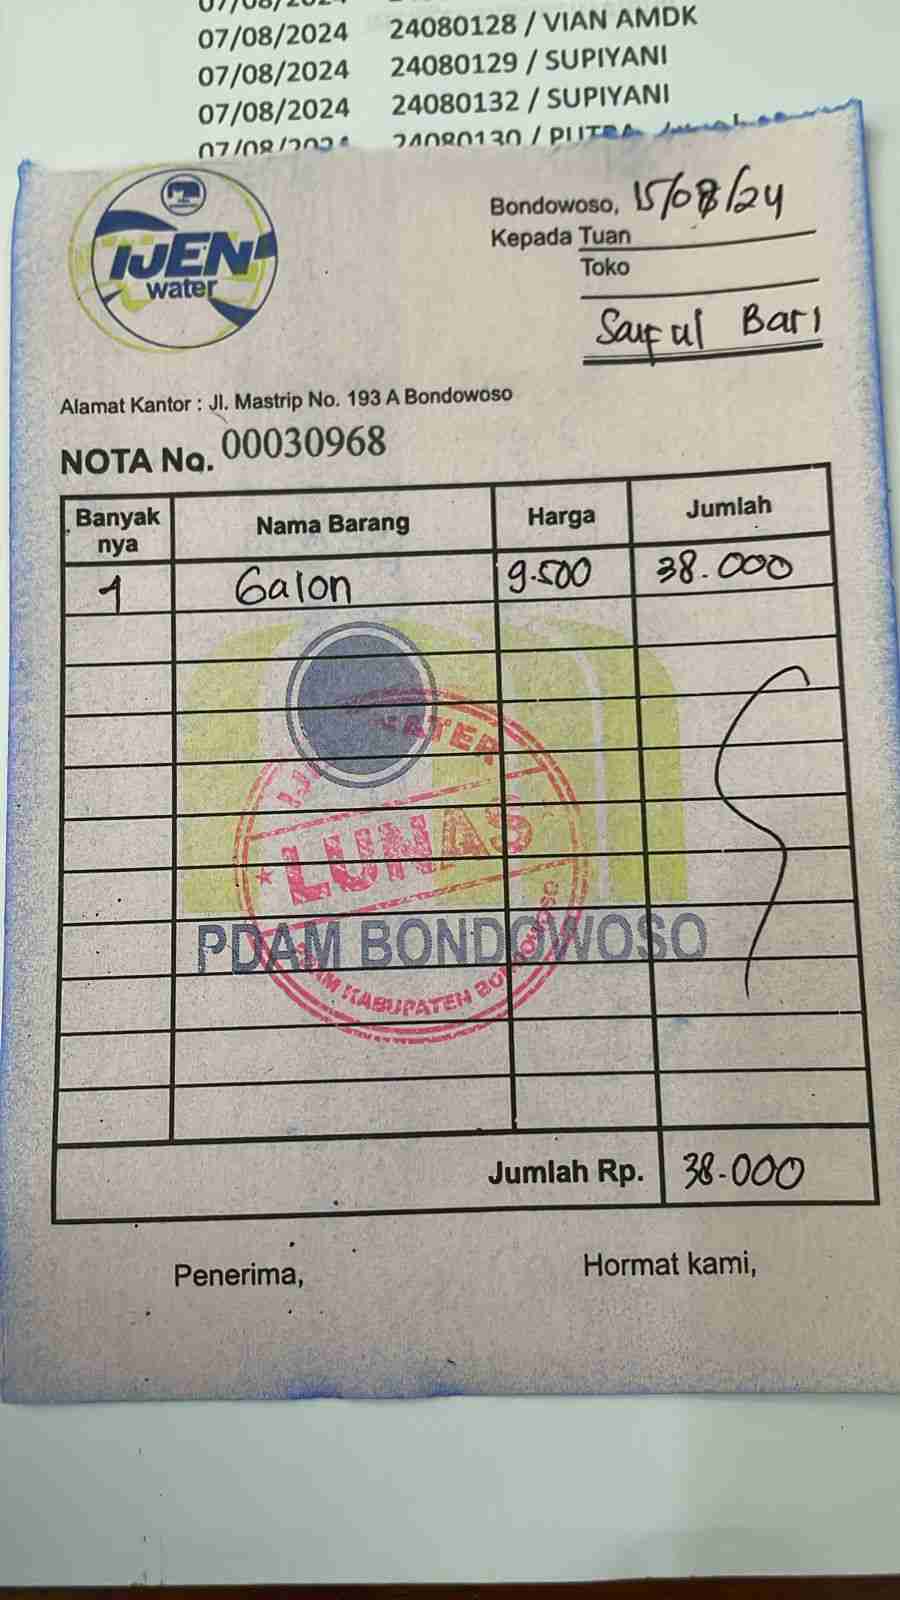 07/08/2024
07/08/2024 24080128 / VIAN AMDK
07/08/2024 24080129 / SUPIYANI
07/08/2024 24080132 / SUPIYANI
07/08/2024 24080130 / PUTRA
IJEN
water
Bondowoso, 15/08/24
Kepada Tuan
Toko
Saiful Bari
Alamat Kantor : Jl. Mastrip No. 193 A Bondowoso
NOTA No. 00030968
Banyak nya Nama Barang Harga Jumlah
1 Galon 9.500 38.000
IJEN WATER
LUNAS
PDAM BONDOWOSO
PDAM KABUPATEN BONDOWOSO
Jumlah Rp. 38.000
Penerima, Hormat kami,